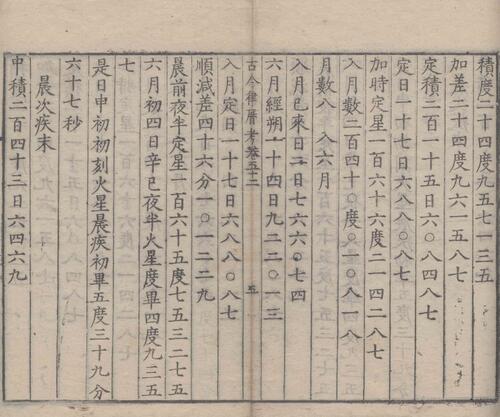 積度二十四度九五七一三五
加差二十四度九六一五八七
定積二百一十五日六〇八四八七
定日一十七日六八八〇八七
加時定星一百六十六度二一四二八七
入月數二百四十〇度〇一〇八一八
月數八 入六月
入月已來日二日七六六〇七四
六月經朔一十四日九二二〇一三
古今律曆考卷五十二 五
入月定日一十七日六八八〇八七
順減差四十六分一〇一二二九
晨前夜半定星一百六十五度七五三二七五
六月初四日辛巳夜半火星度畢四度九三五
七
是日申初初刻火星晨疾初畢五度三十九分
六十七秒
晨次疾末
中積二百四十三日六四六九